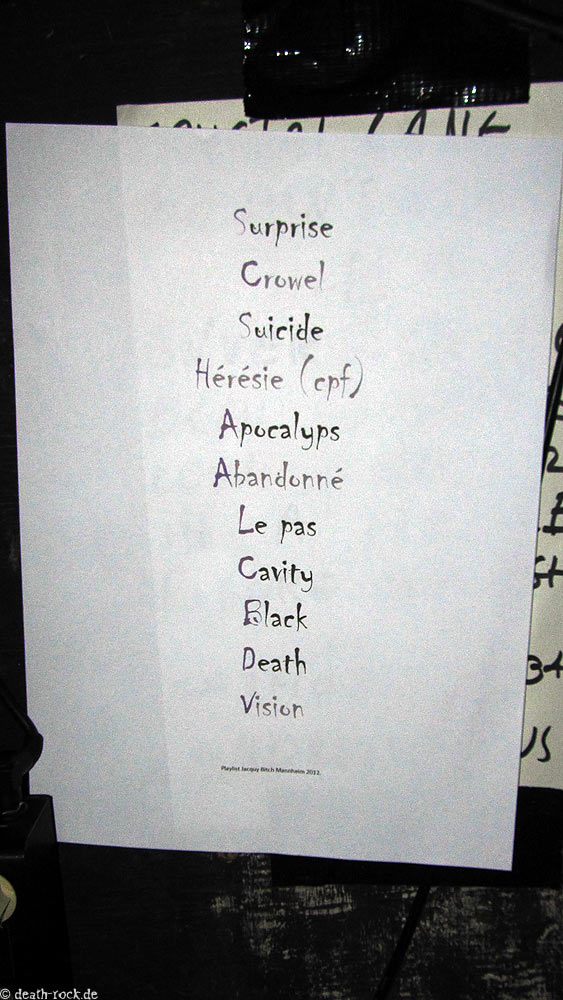 Surprise
Crowel
Suicide
Hérésie (cpf)
Apocalyps
Abandonné
Le pas
Cavity
Black
Death
Vision
Playlist Jacquy Bitch Mannheim 2012.
© death-rock.de